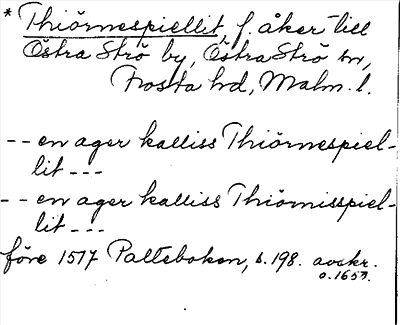 * Thiörnespiellit, f. åker till
Östra Strö by, Östra Strö sn,
Frosta hd, Malm. l.
-- en ager kalliss Thiörnespiel-
lit ---
-- en ager kalliss Thiörnisspiel-
lit ---
före 1517 Palteboken, s. 198. avskr.
o. 1657.